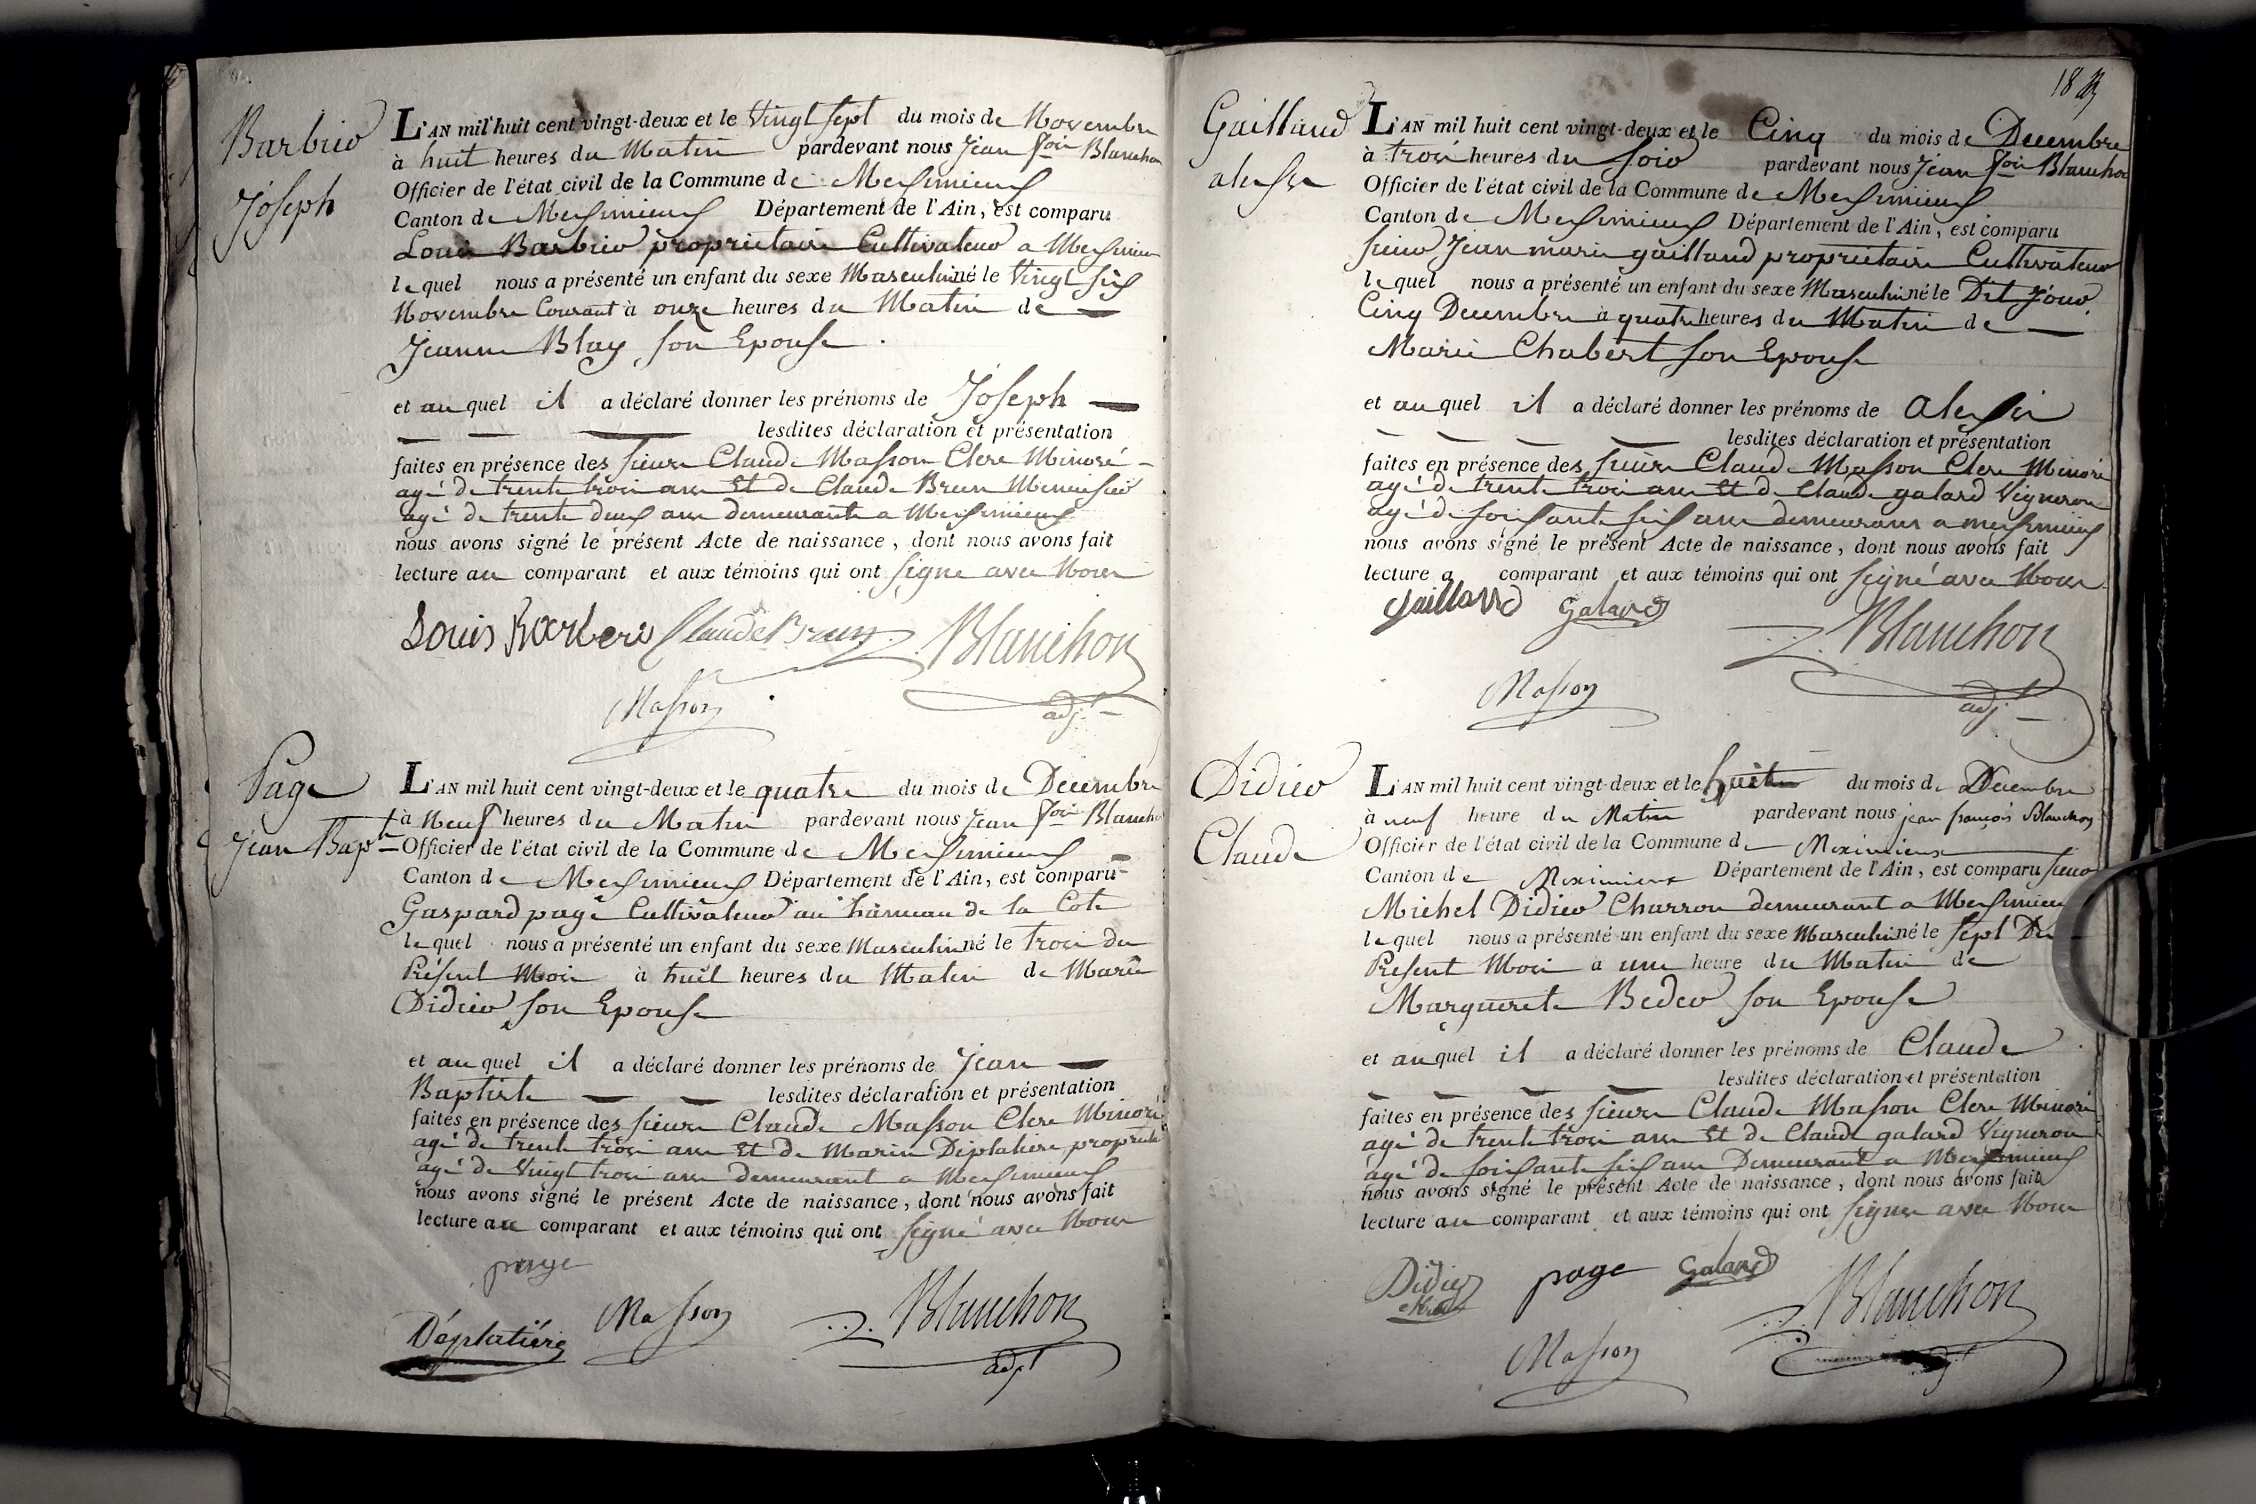 Barbier
Joseph
L'AN mil huit cent vingt-deux et le Vingt sept du mois de Novembre
à huit heures du Matin pardevant nous Jean fois Blanchon
Officier de l'état civil de la Commune de Meximieux
Canton de Meximieux Département de l'Ain, est comparu
Louis Barbier propriétaire Cultivateur a Meximieux
lequel nous a présenté un enfant du sexe Masculin né le Vingt six
Novembre Courant à onze heures du Matin de
Jeanne Blay son Epouse.
et auquel il a déclaré donner les prénoms de Joseph
lesdites déclaration et présentation
faites en présence des sieurs Claude Masson Clerc Minoré
agé de trente trois ans Et de Claude Brun Menuisier
agé de trente deux ans demeurants a Meximieux
nous avons signé le présent Acte de naissance, dont nous avons fait
lecture au comparant et aux témoins qui ont signé avec Nous
Louis Barbero Claude Brun Blanchon
Masson adjt
Page
Jean Bapte
L'AN mil huit cent vingt-deux et le quatre du mois de Decembre
à Neuf heures du Matin pardevant nous Jean fois Blanchon
Officier de l'état civil de la Commune de Meximieux
Canton de Meximieux Département de l'Ain, est comparu
Gaspard page Cultivateur au hameau de la Cote
lequel nous a présenté un enfant du sexe Masculin né le trois du
Présent Mois à huit heures du Matin de Marie
Didier son Epouse
et auquel il a déclaré donner les prénoms de Jean
Baptiste lesdites déclaration et présentation
faites en présence des sieurs Claude Masson Clerc Minoré
agé de trente trois ans Et de Marin Déplatière propriete
agé de Vingt trois ans demeurant a Meximieux
nous avons signé le présent Acte de naissance, dont nous avons fait
lecture au comparant et aux témoins qui ont signé avec Nous
page
Déplatière Masson Blanchon
adjt
Gailland
alexis
L'AN mil huit cent vingt-deux et le Cinq du mois de Decembre
à trois heures du soir pardevant nous Jean fois Blanchon
Officier de l'état civil de la Commune de Meximieux
Canton de Meximieux Département de l'Ain, est comparu
sieur Jean marie gailland propriétaire Cultivateur
lequel nous a présenté un enfant du sexe Masculin né le Dit Jour
Cinq Decembre à quatre heures du Matin de
Marie Chabert son Epouse
et auquel il a déclaré donner les prénoms de alexis
lesdites déclaration et présentation
faites en présence des sieurs Claude Masson Clerc Minoré
agé de trente trois ans Et de Claude galard Vigneron
agé de soixante six ans demeurans a meximieux
nous avons signé le présent Acte de naissance, dont nous avons fait
lecture a comparant et aux témoins qui ont signé avec Nous
gailland galard Blanchon
Masson adjt
Didier
Claude
L'AN mil huit cent vingt-deux et le huit du mois de Decembre
à neuf heure du Matin pardevant nous jean françois Blanchon
Officier de l'état civil de la Commune de Meximieux
Canton de Meximieux Département de l'Ain, est comparu sieur
Michel Didier Charron demeurant a Meximieux
lequel nous a présenté un enfant du sexe Masculin né le sept Du
Présent Mois à une heure du Matin de
Marguerite Beder son Epouse
et auquel il a déclaré donner les prénoms de Claude
lesdites déclaration et présentation
faites en présence des sieurs Claude Masson Clerc Minoré
agé de trente trois ans Et de Claude galard Vigneron
agé de soixante six ans Demeurant a Meximieux
nous avons signé le présent Acte de naissance, dont nous avons fait
lecture au comparant et aux témoins qui ont signer avec Nous
Didier page galard Blanchon
Masson